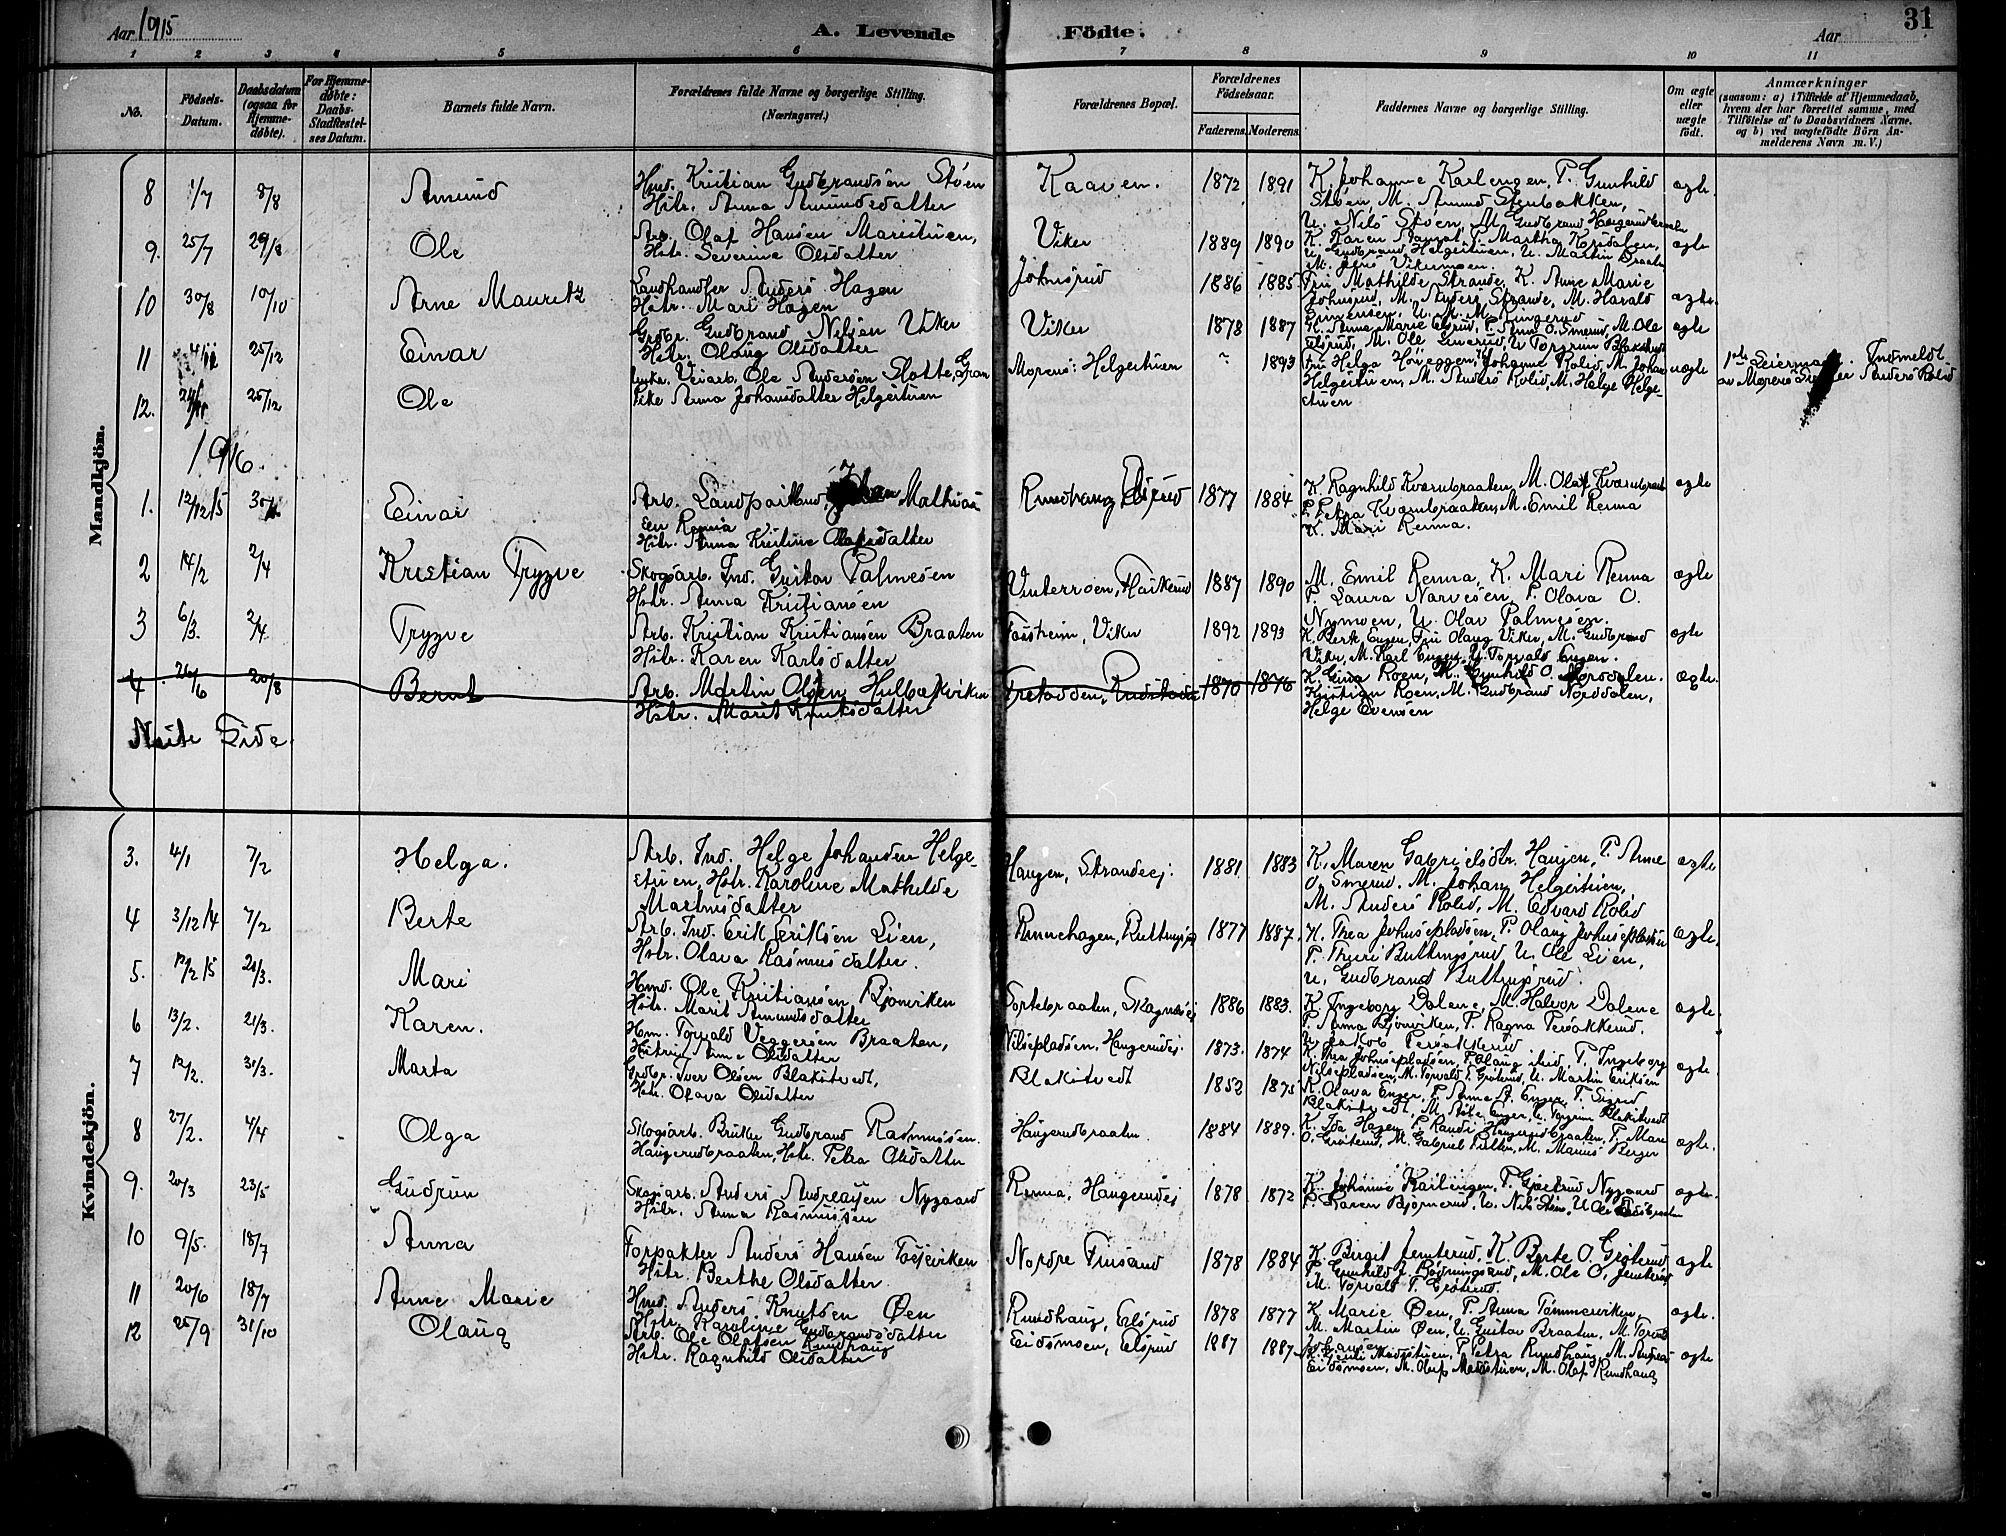 Aar 1915
A. Levende Födte.
Aar
31
1 2 3 4 5 6 7 8 9 10 11
No.
Födsels-Datum.
Daabsdatum (ogsaa for Hjemme-døbte).
For Hjemme-døbte: Daabs-Stadfæstel-ses Datum.
Barnets fulde Navn.
Forældrenes fulde Navne og borgerlige Stilling. (Næringsvei.)
Forældrenes Bopæl.
Forældrenes Födselsaar.
Faderens. Moderens.
Faddernes Navne og borgerlige Stilling.
Om ægte eller uægte födt.
Anmærkninger
(saasom: a) i Tilfælde af Hjemmedaab,
hvem der har forrettet samme, med
Tilföielse af to Daabsvidners Navne.
og b) ved uægtefödte Börn An-
melderens Navn m. V.)
Mandkjön.
8 1/7 8/8 Amund
Hmd. Kristian Gudbrandsen Støen
Hstr. Anna Amundsdatter
Kaaven. 1872 1891
K. Johanne Karlengen, P. Gunhild
Støen, M. Amund Stenbakken,
U. Nils Støen, M. Gudbrand
ægte.
9. 25/7 29/8 Ole
Arb. Olaf Hansen
Hstr. Severine Olsdatter
Viker 1889 1890
K. Karen P. Martha
U. Gudbrand Helgestuen, U. Martin Braaten
M. Jens
ægte
10 30/8 10/10 Arne Mauritz
Landhandler Anders Hagen
Hstr. Mari Hagen
Johnsrud 1886 1885
Fru Mathilde Strande, K. Anne Marie
Johnsrud, M. Anders Strande, M. Harald
Simensen, U. M. M. Ringerud
ægte.
11 25/12 Einar
Grdbr. Gudbrand Nilsen Viker
Hstr. Olaug Olsdatter
Viker 1878 1887
K. Anna Marie Elsrud, P. O. Smerud, M. Ole
Elsrud, M. Ole Smerud, U. Torgrim Blakstvedt
ægte
12. 26/12 Ole
Veiarb. Ole Andersen Slotte, Gran
Pike Anna Johansdatter Helgestuen
Morens: Helgestuen " 1893
Fru Helga Høieggen, Johanne Rolid, M. Johan
Helgestuen, M. Anders Rolid, M. Helge Helge-
stuen
uægte
1ste Leiermaal. Indmeldt
av Morens Anders Rolid
1916.
1. 12/12 15 Einar
Arb. Mathias-
sen Renna
Hstr. Anna Kristine Olafsdatter
Rundhaug Elsrud 1877 1884
K. Ragnhild Kværnbraaten, M. Olaf Kværnbraaten
P. Petra Kværnbraaten, M. Emil Renna
K. Mari Renna.
ægte
2 14/2 2/4 Kristian Trygve
Skogsarb. Ind. Gustav Palmesen
Hstr. Anna Kristiansen
Vinterroen, 1887 1890
M. Emil Renna, K. Mari Renna
P. Laura Narvesen, P. Olava O.
Nymoen, U. Olav Palmesen.
ægte
3 6/3. 2/4. Trygve
Arb. Kristian Kristiansen Braaten
Hstr. Karen Karlsdatter
Fossheim, Viker 1892 1893
K. Berte Enger, Fru Olaug Viker, M. Gudbrand
Viker, M. Karl Enger, U. Torvald Enger.
ægte
4 26/6 20/8 Bernt
Arb. Martin Olsen
Hstr. Marit Knutsdatter
1870 1876
K. Gina Roen, K. Gunhild O. Norddalen.
Kristian Roen, M. Gudbrand Norddalen,
Helge Evensen
ægte.
Næste Side.
Kvindekjön.
3. 4/1 7/2 Helga.
Arb. Ind. Helge Johansen Helge-
stuen, Hstr. Karoline Mathilde
Martinsdatter
Haugen, Strandeej. 1881 1883
K. Maren Gabrielsdtr. Haugen, P. Anne
O. Smerud. M. Johan Helgestuen,
M. Anders Rolid, M. Edvard Rolid
ægte
4 3/12 14 7/2 Berte
Arb. Ind. Erik Eriksen Lien,
Hstr. Olava Rasmusdatter.
Rennehagen, 1877 1887.
K. Thea Johnsepladsen, P. Olaug Johnsepladsen
P. Thuri Buttingsrud, U. Ole Lien,
U. Gudbrand Buttingsrud.
ægte.
5. 12/2 15 21/3. Mari
Hmd. Ole Kristiansen Bjonviken
Hstr. Marit Amundsdatter
Sortebraaten, 1886 1883.
K. Ingeborg Dalene, M. Halvor Dalene
P. Anna Bjonviken, P. Ragna Persakkerud.
U. Jakob Persakkerud
ægte.
6 13/2. 21/3. Karen.
Hm. Torvald Veggersen Braaten,
Hstr. Anne Olsdatter
Nilsepladsen, Haugerudej. 1873. 1874
K. Thea Johnsepladsen, P. Olaug P. Ingeborg
Nilsepladsen, M. Torvald T. Grøterud, U. Martin Eriksen
ægte.
7 12/2. 31/3. Marta
Grdbr. Iver Olsen Blakstvedt,
Hstr. Olava Olsdatter
Blakstvedt 1852 1875
K. Olava Enger, P. Anne A. Enger, P. Sigrid
Blakstvedt, M. Enger, U. Torgrim Blakstvedt
8 27/2. 4/4 Olga
Skogsarb. Gudbrand Rasmussen.
Haugerudbraaten, Hstr. Petra Olsdatter
Haugerudbraaten. 1884 1889.
K. Ida Hagen, P. Randi Haugerudbraaten, P. Mari
O. Grøterud, M. Gabriel M. Marius Berger
ægte.
9. 20/3 23/5 Gudrun
Skogsarb. Anders Andreassen Nygaard
Hstr. Anna Rasmussen
Renna, Haugerudej 1878. 1872
K. Johanne Karlengen, P. Gjertrud Nygaard
P. Karen Bjørnerud, U. Nils U. Ole
ægte.
10 9/5. 18/7 Anna
Forpakter Anders Hansen
Hstr. Berthe Olsdatter.
Nordre Finsand 1878 1884
K. Birgit Jenterud, K. Berte O. Grøterud
P. Gunhild J. M. Ole O. Jenterud
M. Torvald T. Grøterud.
ægte
11 20/6 18/7 Anne Marie
Hmd. Anders Knutsen Øen
Hstr. Karoline Gudbrandsdatter
Rundhaug, Elsrud 1878 1877
K. Marie Øen, P. Anna Tømmerviken,
M. Martin Øen, U. Gustav Braaten, M. Torvald
Johansen
ægte.
12 25/9 31/10 Olaug
Arb. Ole Olafsen Rundhaug
Hstr. Ragnhild Olsdatter
Eidsmoen, Elsrud 1887 1887
Madsstuen, P. Petra Rundhaug, M. Andreas
Eidsmoen, M. Olaf Madsstuen, M. Olaf Rundhaug
ægte